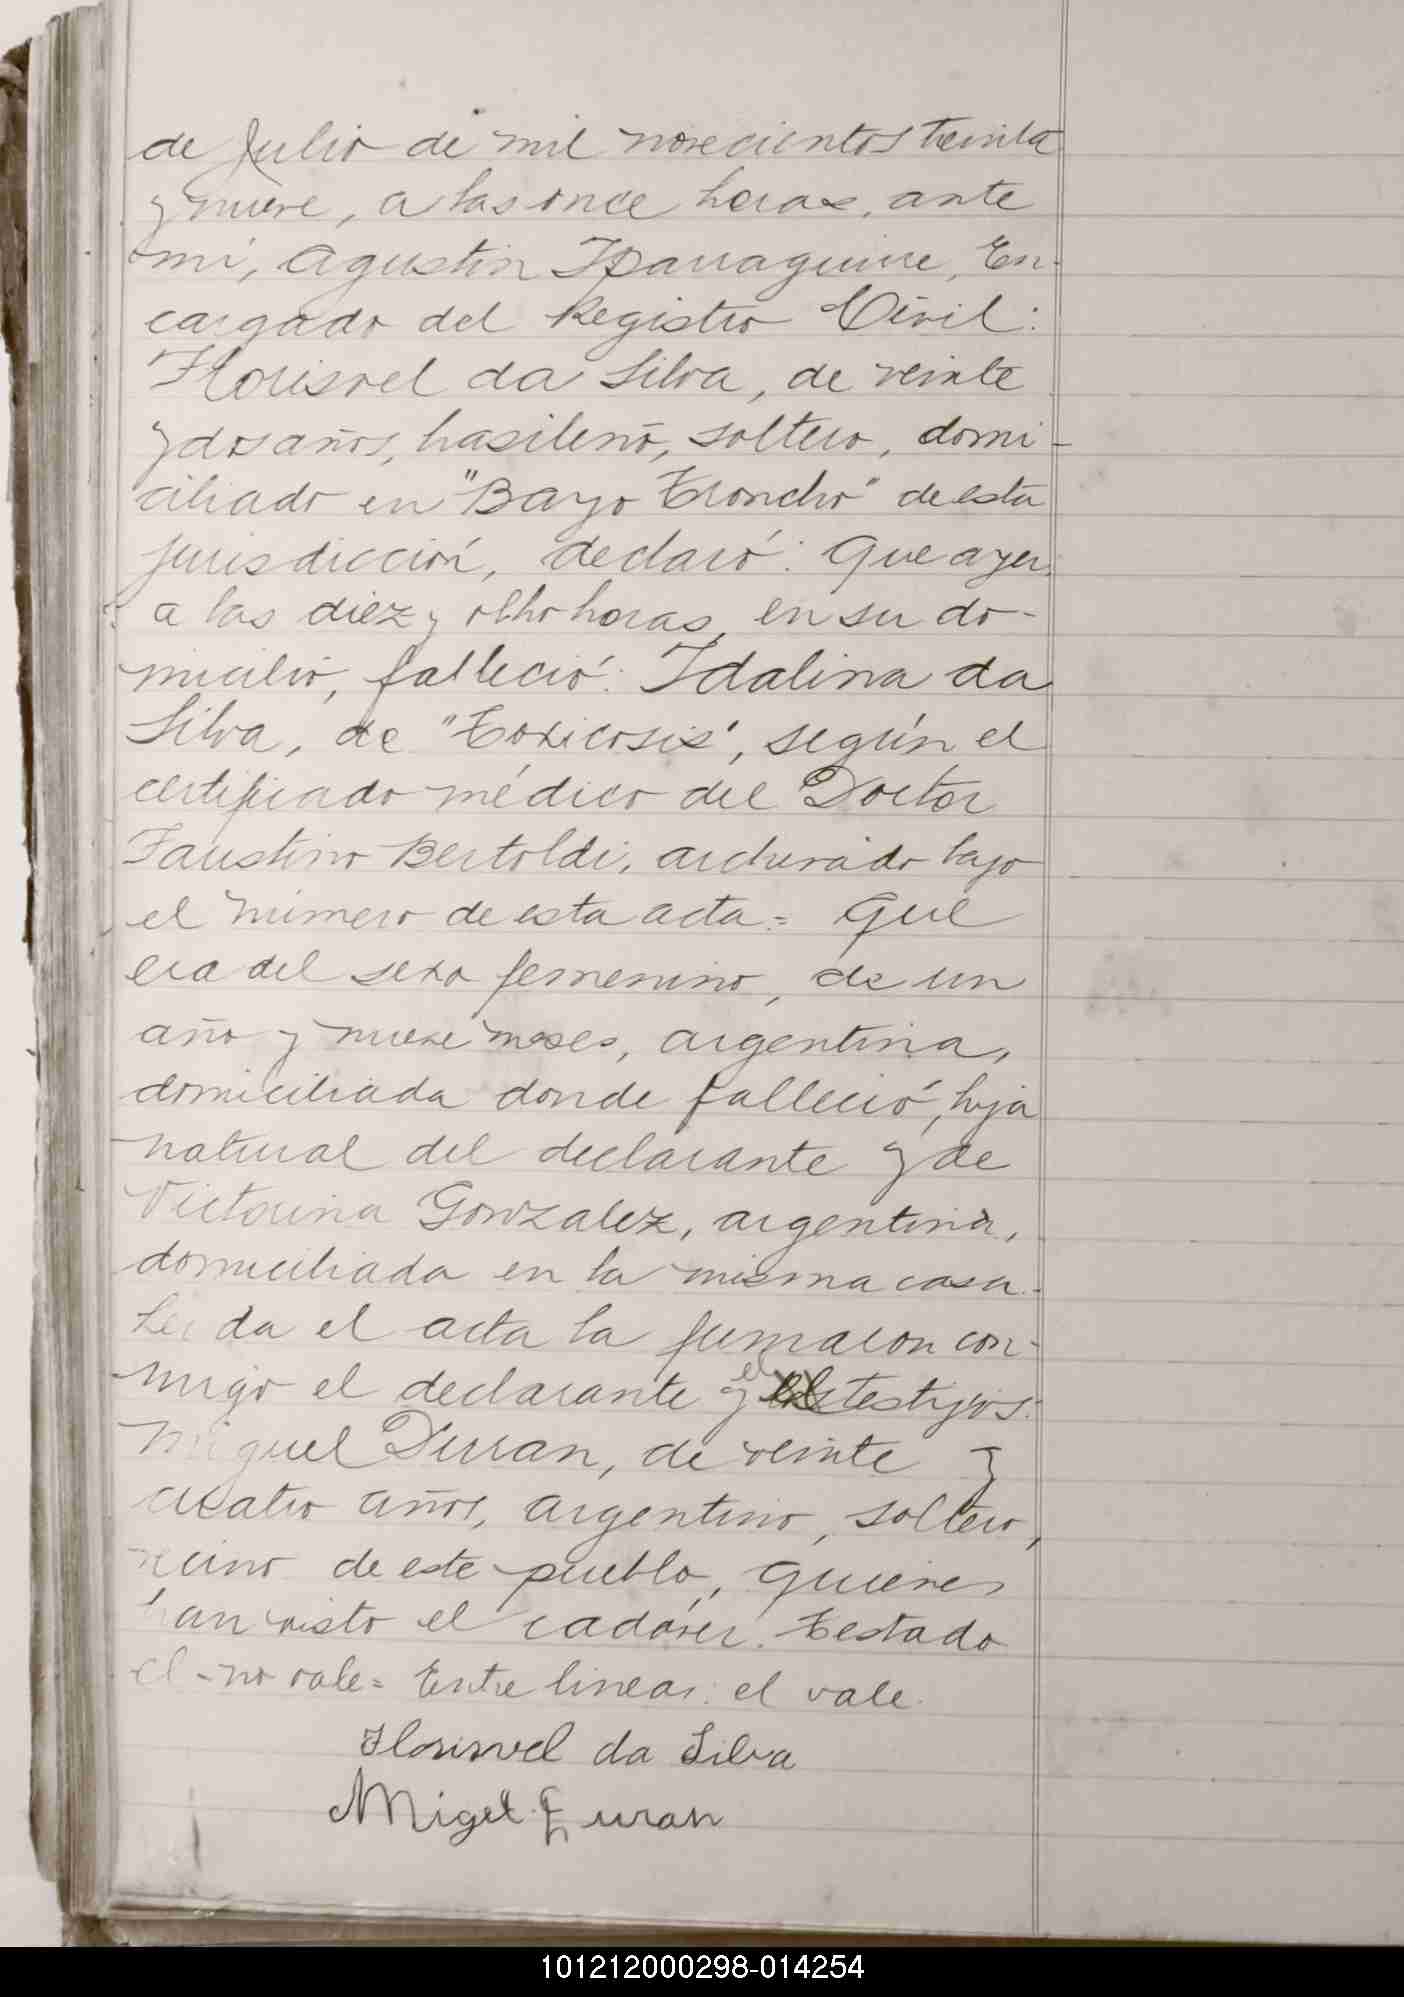 de Julio de mil novecientos treinta
y nueve, a las once horas, ante
mí, Agustin Yparraguirre, En-
cargado del Registro Civil:
Florisvel da Silva, de veinte
y dos años, brasileño, soltero, domi-
ciliado en "Bayo Troncho" de esta
jurisdicción, declaró: Que ayer
a las diez y ocho horas, en su do-
micilio, falleció: Idalina da
Silva, de "Toxicosis", según el
certificado médico del Doctor
Faustino Bertoldi, archivado bajo
el número de esta acta = Que
era del sexo femenino, de un
año y nueve meses, argentina,
domiciliada donde falleció, hija
natural del declarante y de
Victorina Gonzalez, argentina,
domiciliada en la misma casa.-
Leida el acta la firmaron con-
migo el declarante y el testigos:
Miguel Duran, de veinte y
cuatro años, argentino, soltero,
vecino de este pueblo, quienes
han visto el cadáver. Testado
el - no vale = Entre lineas: el vale.
Florisvel da Silva
Migel Duran
101212000298-014254